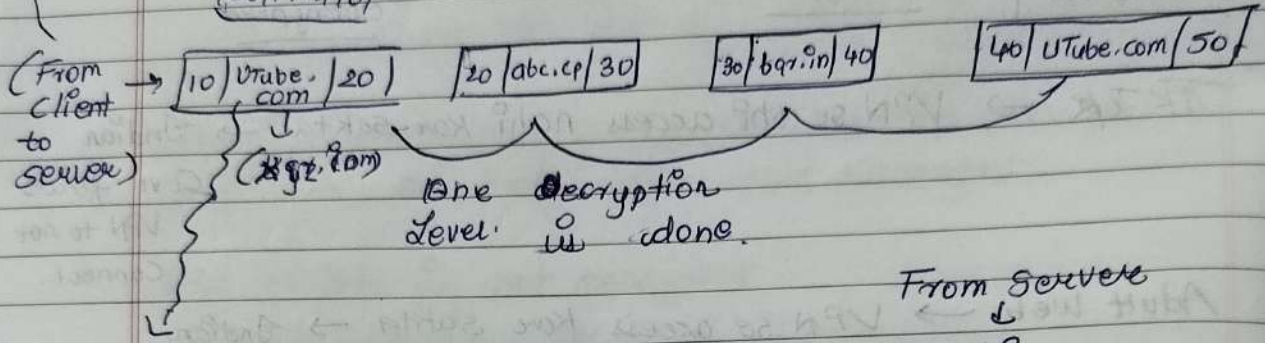 (From Client to Server) → |10| UTube.com |20| |20| abc.cp |30| |30| bqr.in |40| |40| UTube.com |50|
↓
One Decryption
Level. is done.
From Server
↓